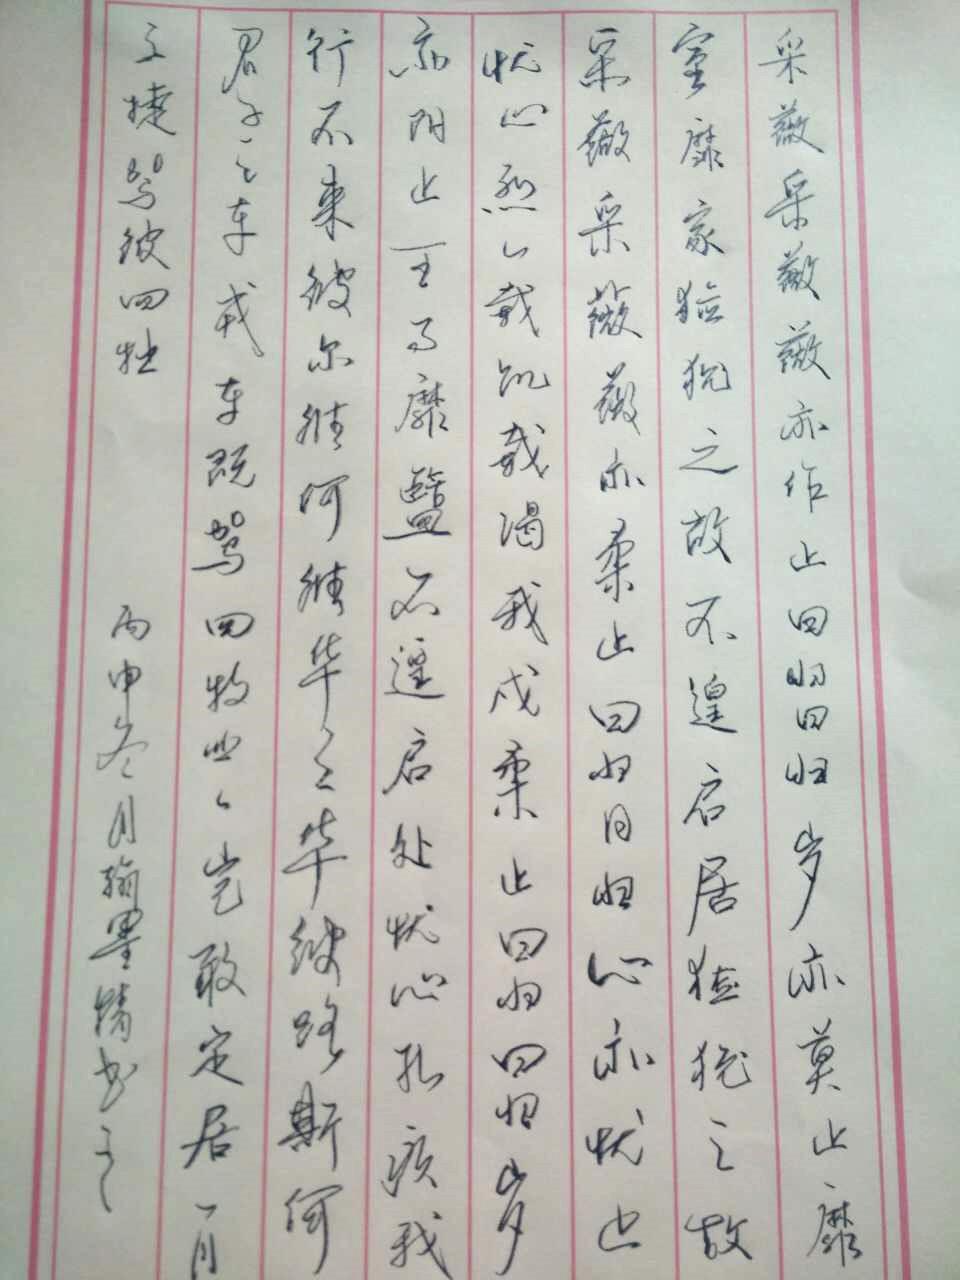 采薇采薇薇亦作止曰归曰归岁亦莫止靡
室靡家猃狁之故不遑启居猃狁之故
采薇采薇薇亦柔止曰归曰归心亦忧止
忧心烈々载饥载渴我戍柔止曰归曰归岁
亦阳止王事靡盬不遑启处忧心孔疚我
行不来彼尔维何维华之华彼路斯何
君子之车戎车既驾四牡业々岂敢定居一月
三捷驾彼四牡
丙申冬月翰墨精书之